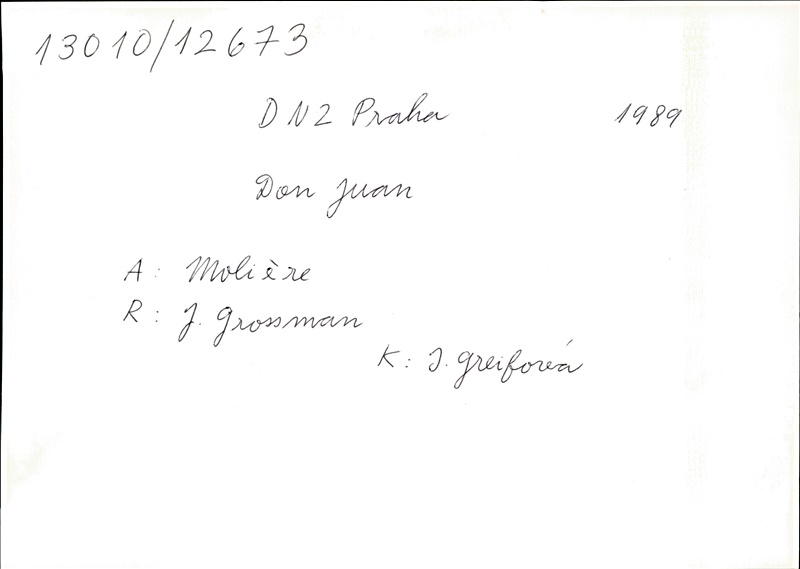 13010/12673
DNZ Praha 1989
Don Juan
A: Molière
R: J. Grossman
K: I. Greifová